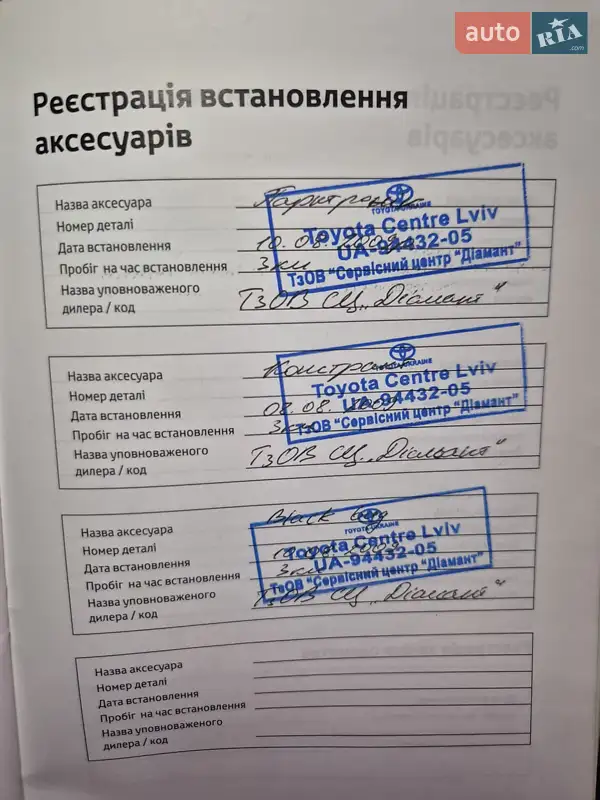 auto RIA .com
Реєстрація встановлення
аксесуарів
Назва аксесуара Парктронік
Номер деталі
Дата встановлення 10.08.2009
Пробіг на час встановлення 3 км
Назва уповноваженого
дилера / код ТзОВ СЦ „Діамант"
TOYOTA UKRAINE
Toyota Centre Lviv
UA-94432-05
ТзОВ "Сервісний центр "Діамант"
Назва аксесуара
Номер деталі
Дата встановлення 08.08.2009
Пробіг на час встановлення 3 км
Назва уповноваженого
дилера / код ТзОВ СЦ „Діамант"
TOYOTA UKRAINE
Toyota Centre Lviv
UA-94432-05
ТзОВ "Сервісний центр "Діамант"
Назва аксесуара Black
Номер деталі
Дата встановлення
Пробіг на час встановлення 3 км
Назва уповноваженого
дилера / код ТзОВ СЦ „Діамант"
TOYOTA UKRAINE
Toyota Centre Lviv
UA-94432-05
ТзОВ "Сервісний центр "Діамант"
Назва аксесуара
Номер деталі
Дата встановлення
Пробіг на час встановлення
Назва уповноваженого
дилера / код